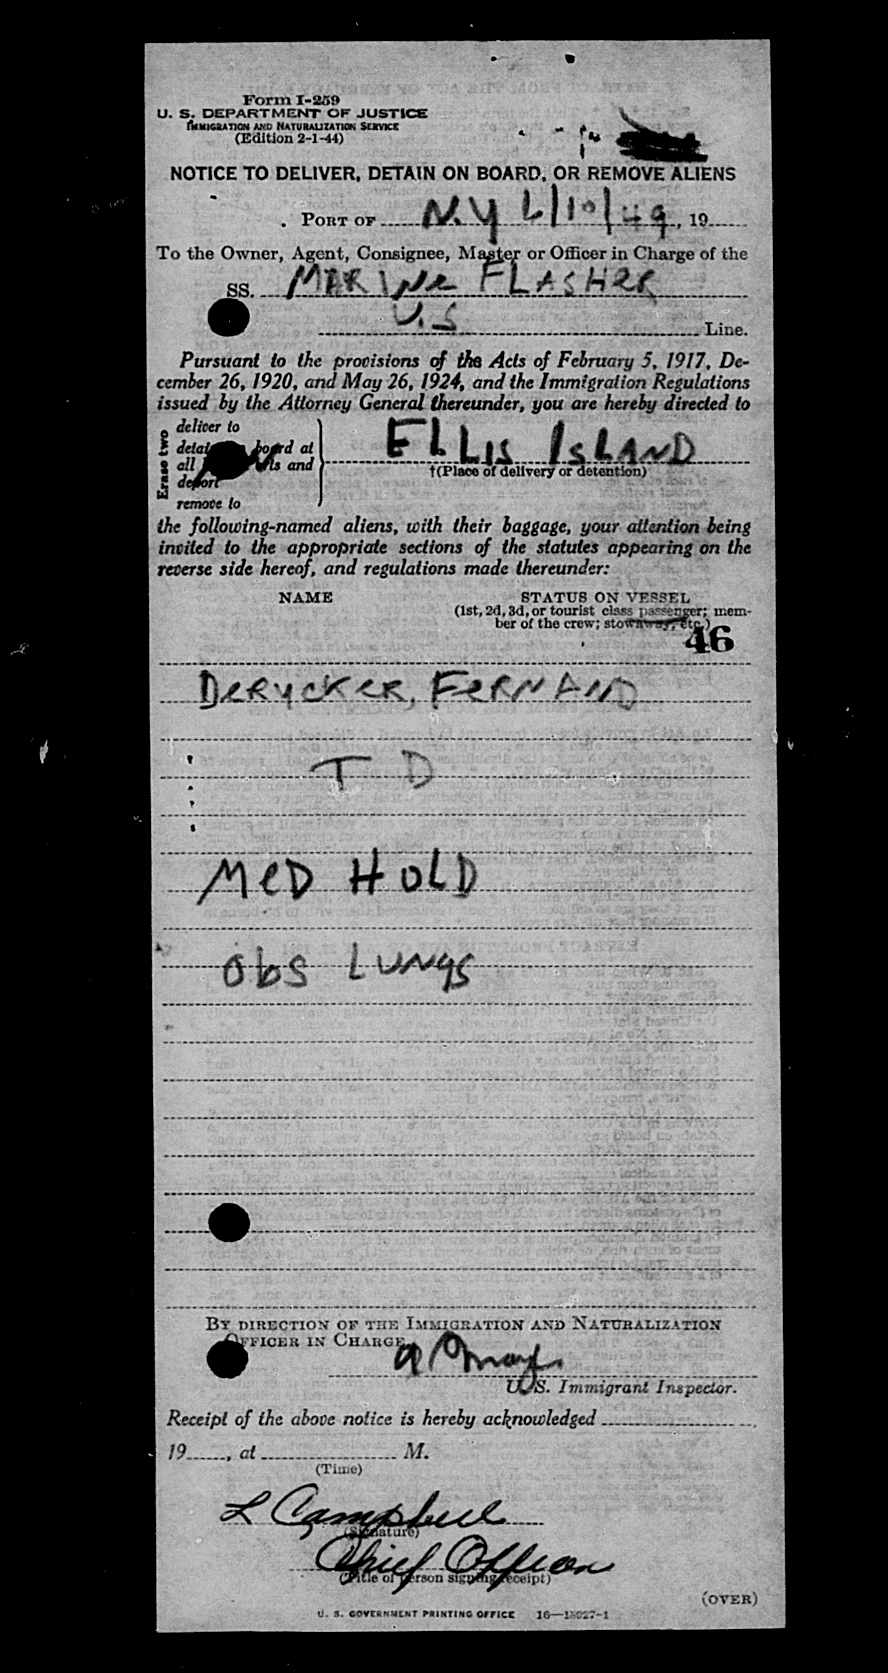 Form I-259
U. S. DEPARTMENT OF JUSTICE
IMMIGRATION AND NATURALIZATION SERVICE
(Edition 2-1-44)
NOTICE TO DELIVER, DETAIN ON BOARD, OR REMOVE ALIENS
PORT OF N.Y 6/10/49, 19
To the Owner, Agent, Consignee, Master or Officer in Charge of the
SS. MARINE FLASHER
U.S Line.
Pursuant to the provisions of the Acts of February 5, 1917, De-
cember 26, 1920, and May 26, 1924, and the Immigration Regulations
issued by the Attorney General thereunder, you are hereby directed to
Erase two
deliver to
detain board at
all and
deport
remove to
ELLIS ISLAND
†(Place of delivery or detention)
the following-named aliens, with their baggage, your attention being
invited to the appropriate sections of the statutes appearing on the
reverse side hereof, and regulations made thereunder:
NAME STATUS ON VESSEL
(1st, 2d, 3d, or tourist class passenger; mem-
ber of the crew; stowaway, etc.)
46
DERYCKER, FERNAND
T D
MED HOLD
Obs LUNgS
BY DIRECTION OF THE IMMIGRATION AND NATURALIZATION
OFFICER IN CHARGE
U. S. Immigrant Inspector.
Receipt of the above notice is hereby acknowledged
19, at M.
(Time)
L Campbell
(Signature)
Chief Officer
(Title of person signing receipt)
(OVER)
U. S. GOVERNMENT PRINTING OFFICE 16—18927-1